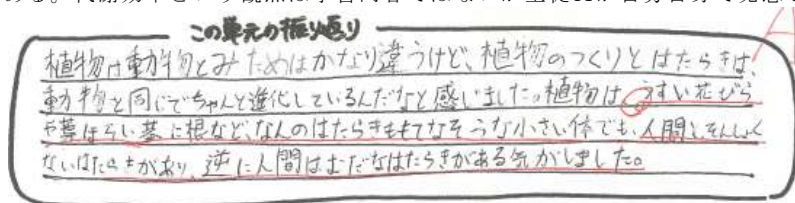 この単元の振り返り
植物は動物とみためはかなり違うけど、植物のつくりとはたらきは、
動物と同じでちゃんと進化しているんだなと感じました。植物は、うすい花びら
や葉ほそい茎に根など、なんのはたらきももてなそうな小さい体でも、人間とそんしょく
ないはたらきがあり、逆に人間はむだなはたらきがある気がしました。